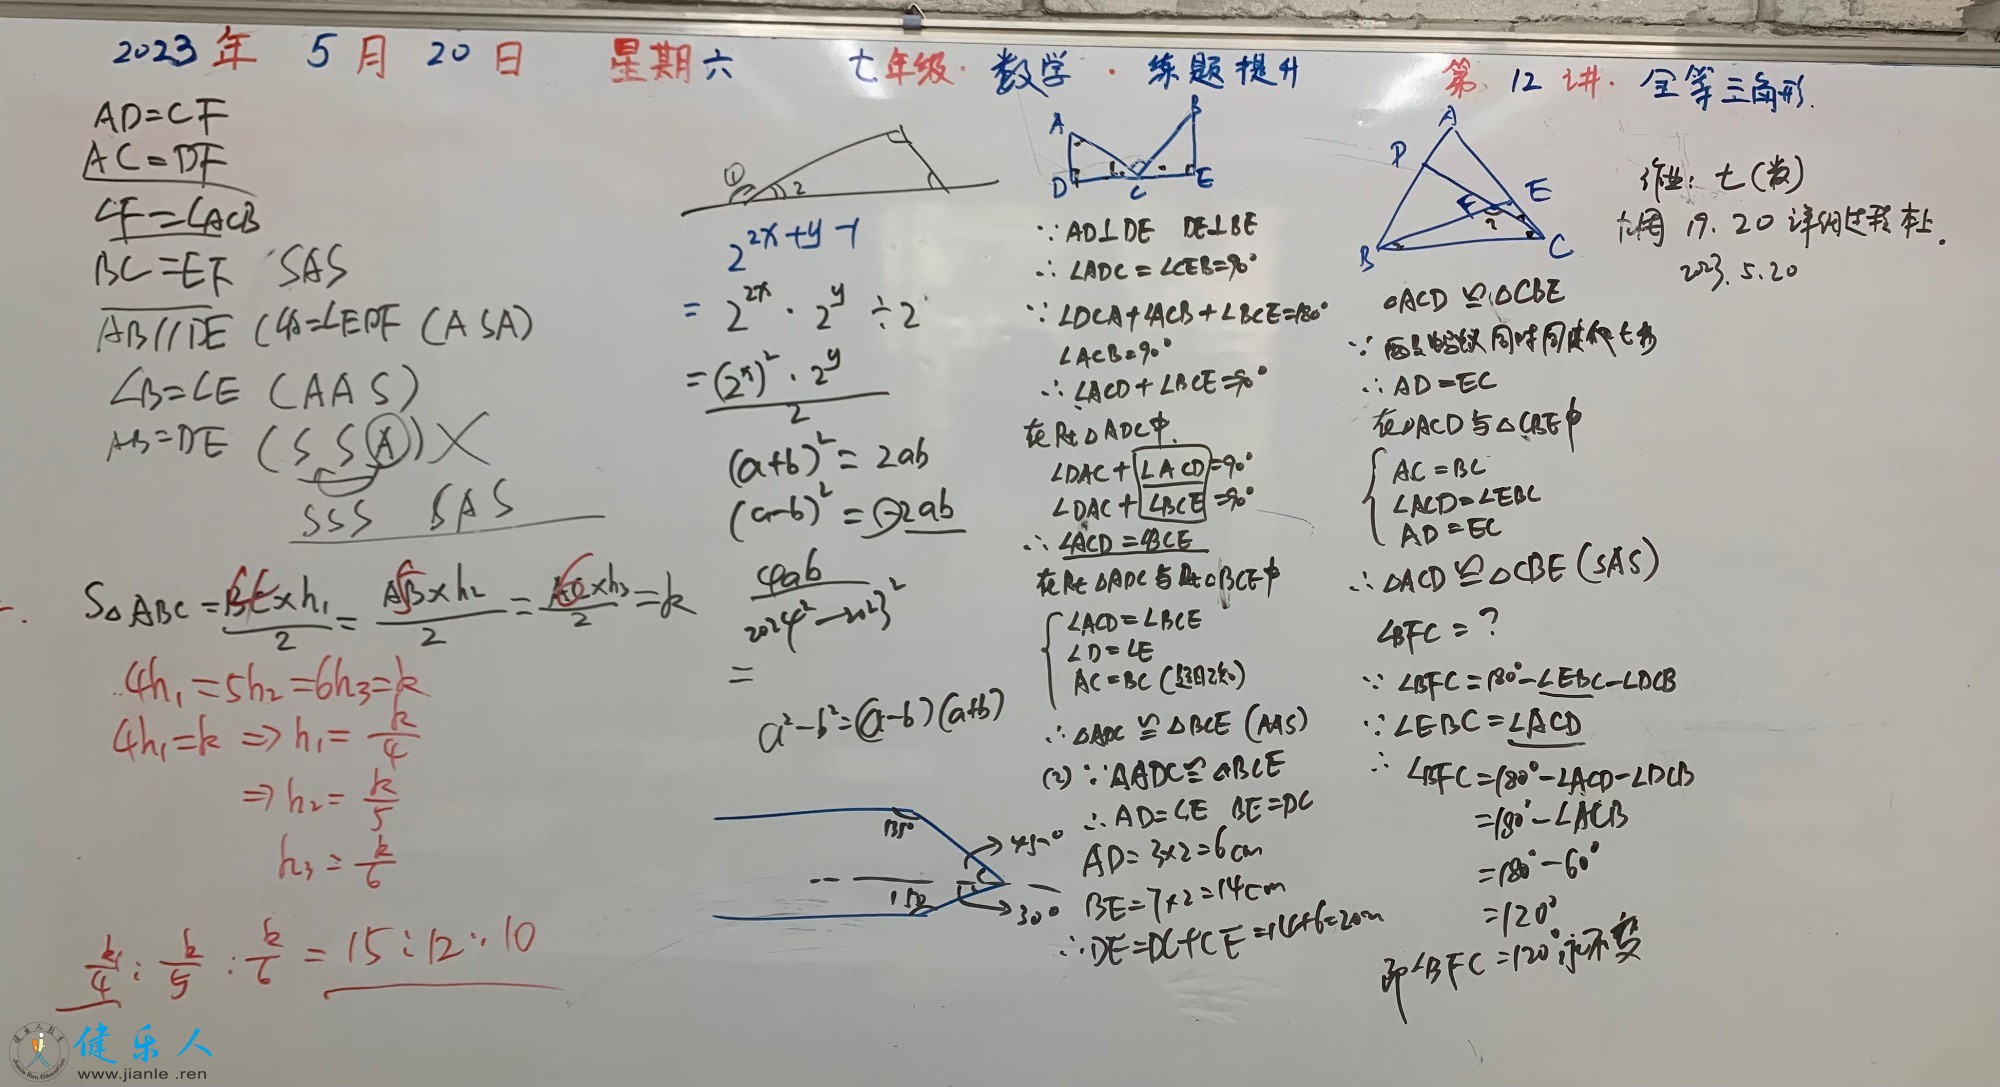 2023年 5月 20日 星期六 七年级·数学·练题提升 第12讲·全等三角形.
AD=CF
AC=DF
∠F=∠ACB
BC=EF SAS
AB//DE (∠A=∠EDF (ASA)
∠B=∠E (AAS)
AB=DE (SSA) ×
SSS SAS
S△ABC=BC×h₁/2=AB×h₂/2=AC×h₃/2=k
4h₁=5h₂=6h₃=k
4h₁=k ⇒ h₁=k/4
⇒ h₂=k/5
h₃=k/6
k/4:k/5:k/6=15:12:10
① 2
2^(2x+y-1)
=2^(2x)·2^y÷2
=(2^x)²·2^y/2
(a+b)²=2ab
(a-b)²=-2ab
4ab/2024²-2023²
=
a²-b²=(a-b)(a+b)
135°
45°
150
30°
A B
D C E
∵AD⊥DE DE⊥BE
∴∠ADC=∠CEB=90°
∵∠DCA+∠ACB+∠BCE=180°
∠ACB=90°
∴∠ACD+∠BCE=90°
在Rt△ADC中.
∠DAC+∠ACD=90°
∠DAC+∠BCE=90°
∴∠ACD=∠BCE
在Rt△ADC与Rt△BCE中
∠ACD=∠BCE
∠D=∠E
AC=BC(题目已知)
∴△ADC≌△BCE(AAS)
(2)∵△ADC≌△BCE
∴AD=CE BE=DC
AD=3×2=6cm
BE=7×2=14cm
∴DE=DC+CE=14+6=20cm
A
D
E
F
?
B C
△ACD≌△CBE
∵两只蚂蚁同时同速
∴AD=EC
在△ACD与△CBE中
AC=BC
∠ACD=∠EBC
AD=EC
∴△ACD≌△CBE(SAS)
∠BFC=?
∵∠BFC=180°-∠EBC-∠DCB
∵∠EBC=∠ACD
∴∠BFC=180°-∠ACD-∠DCB
=180°-∠ACB
=180°-60°
=120°
即∠BFC=120°永不变
作业:七(数)
19.20 详细过程本上.
2023.5.20
健乐人
www.jianle.ren